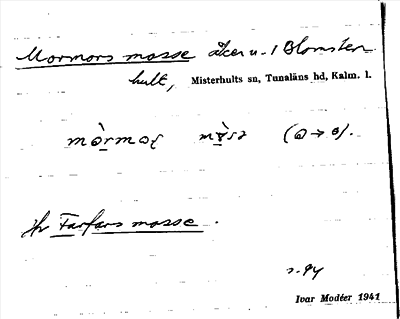 Mormors mosse åker u. 1 Blomster-
hult, Misterhults sn, Tunaläns hd, Kalm. l.
Jfr Farfars mosse.
s. 94
Ivar Modéer 1941